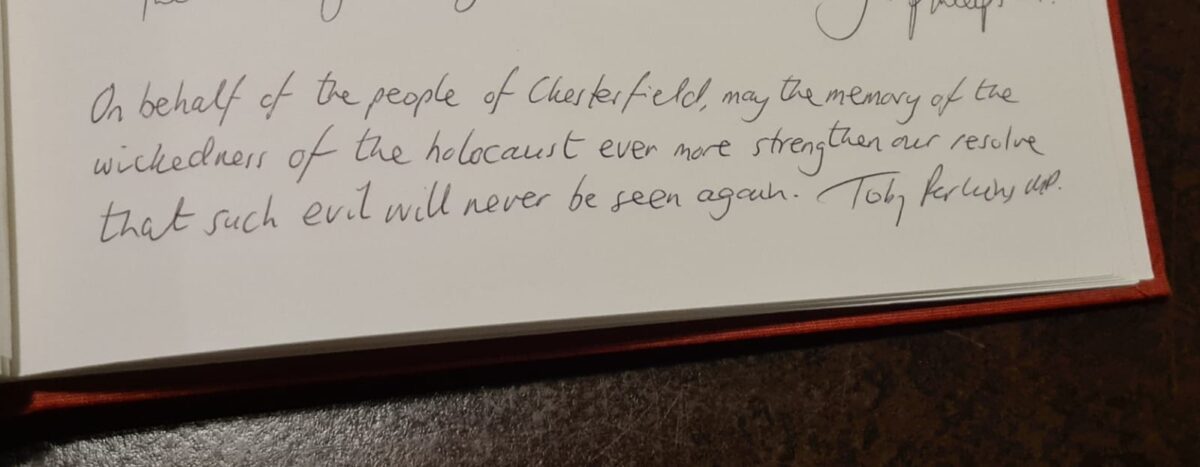 On behalf of the people of Chesterfield, may the memory of the
wickedness of the holocaust ever more strengthen our resolve
that such evil will never be seen again. Toby Perkins MP.